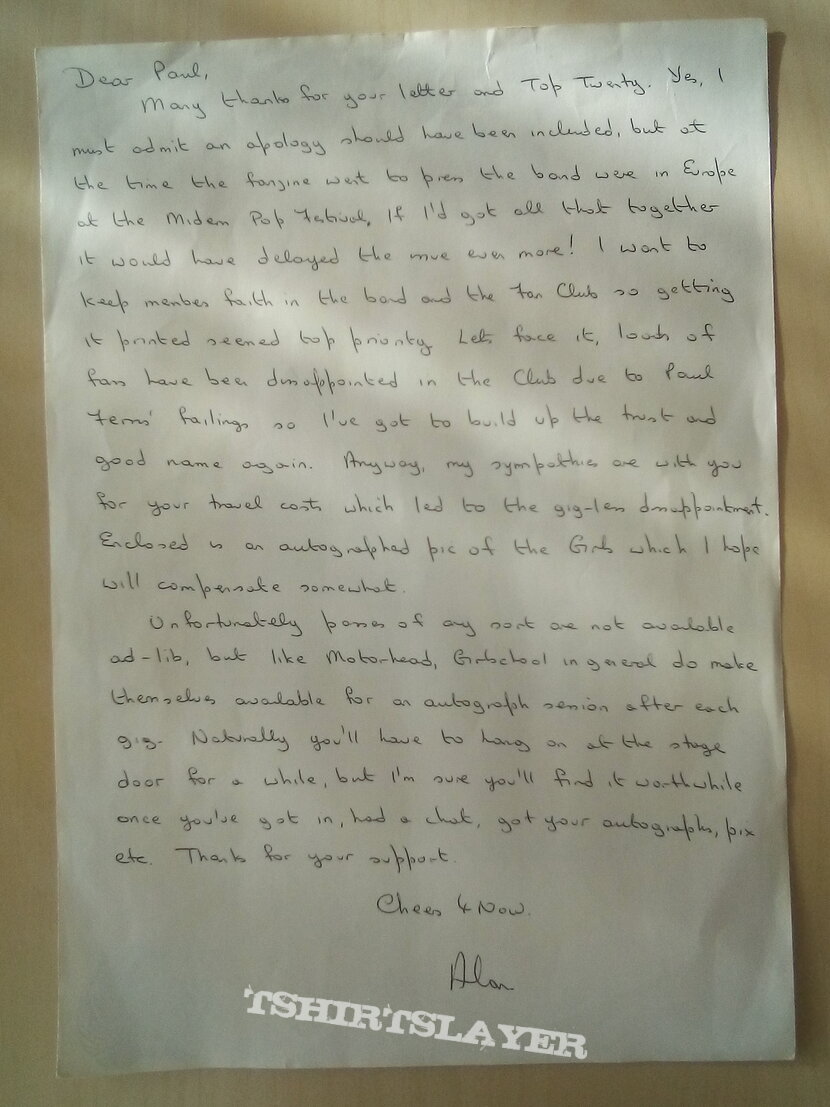 Dear Paul,
Many thanks for your letter and Top Twenty. Yes, I
must admit an apology should have been included, but at
the time the fanzine went to press the band were in Europe
at the Midem Pop Festival. If I'd got all that together
it would have delayed the issue even more! I want to
keep members faith in the band and the Fan Club so getting
it printed seemed top priority. Lets face it, loads of
fans have been disappointed in the Club due to Paul
Ferris' failings so I've got to build up the trust and
good name again. Anyway, my sympathies are with you
for your travel costs which led to the gig-less disappointment.
Enclosed is an autographed pic of the Girls which I hope
will compensate somewhat.
Unfortunately passes of any sort are not available
ad-lib, but like Motorhead, Girlschool in general do make
themselves available for an autograph session after each
gig. Naturally you'll have to hang on at the stage
door for a while, but I'm sure you'll find it worthwhile
once you've got in, had a chat, got your autographs, pix
etc. Thanks for your support.
Cheers 4 Now.
Alan
TSHIRTSLAYER